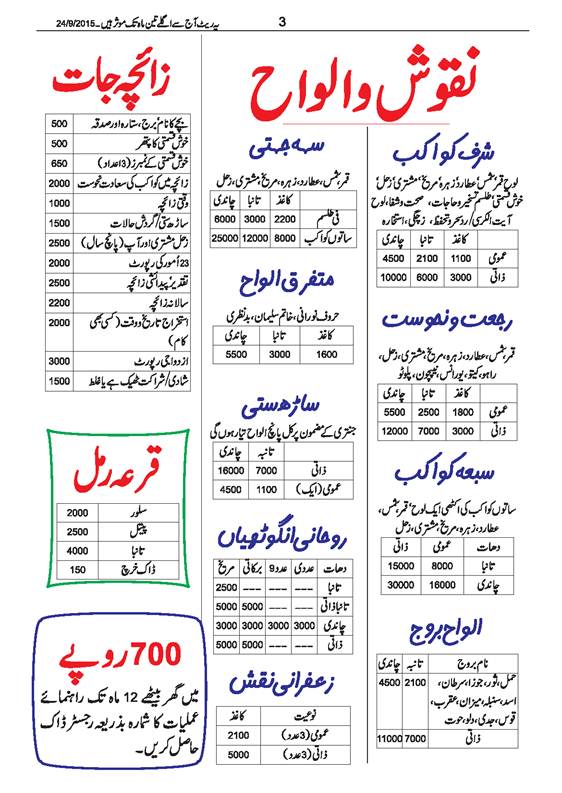 یہ ریٹ آج سے اگلے تین ماہ تک موثر ہیں۔24/9/2015
3
نقوش والواح
شرف کواکب
لوح قمر، شمس، عطارد، زہرہ، مریخ، مشتری، زحل،
خوش قسمتی طلسم تسخیر و حاجات، صحت وشفا، لوح
آیت الکرسی/ردسحر و تحفظ، زچگی، استخارہ
کاغذ تانبا چاندی
عمومی 1100 2100 4500
ذاتی 3000 6000 10000
رجعت و نحوست
قمر، شمس، عطارد، زہرہ، مریخ، مشتری، زحل،
راہو، کیتو، یورانس، نیپچون، پلوٹو
کاغذ تانبا چاندی
عمومی 1800 2500 5500
ذاتی 3000 7000 12000
سبعہ کواکب
ساتوں کواکب کی اکٹھی ایک لوح قمر، شمس،
عطارد، زہرہ، مریخ، مشتری، زحل
دھات عمومی ذاتی
تانبا 8000 15000
چاندی 16000 30000
الواح بروج
نام بروج تانبہ چاندی
حمل، ثور، جوزا، سرطان، 2100 4500
اسد، سنبلہ، میزان، عقرب،
قوس، جدی، دلو، حوت
ذاتی 7000 11000
سہہ جہتی
قمر، شمس، عطارد، زہرہ، مریخ، مشتری، زحل
کاغذ تانبا چاندی
فی طلسم 2200 3000 6000
ساتوں کواکب 8000 12000 25000
متفرق الواح
حروف نورانی، خاتم سلیمان، بدنظری
کاغذ تانبا چاندی
1600 3000 5500
ساڑھ ستی
جنتری کے مضمون پر کل پانچ الواح تیار ہوں گی
تانبہ چاندی
ذاتی 7000 16000
عمومی (ایک) 1100 4500
روحانی انگوٹھیاں
دھات عددی عدد9 برکاتی مریخ
تانبا --- --- --- 2500
تانبا ذاتی --- --- 5000 5000
چاندی 3000 3000 3000 3000
ذاتی --- --- 5000 5000
زعفرانی نقش
نوعیت کاغذ
عمومی (3عدد) 2100
ذاتی (3عدد) 5000
زائچہ جات
بچے کا نام برج، ستارہ اور صدقہ 500
خوش قسمتی کا پتھر 500
خوش قسمتی کے نمبرز (3اعداد) 650
زائچہ میں کواکب کی سعادت نحوست 2000
وقتی زائچہ 1000
ساڑھ ستی/گردش حالات 1500
زحل مشتری اور آپ (پانچ سال) 2500
23 امور کی رپورٹ 2000
تقدیر/پیدائشی زائچہ 2500
سالانہ زائچہ 2200
استخراج تاریخ ووقت (کسی بھی 2000
کام)
ازدواجی رپورٹ 3000
شادی/شراکت ٹھیک ہے یا غلط 1500
قرعہ رمل
سلور 2000
پیتل 2500
تانبا 4000
ڈاک خرچ 150
700 روپے
میں گھر بیٹھے 12 ماہ تک راہنمائے
عملیات کا شمارہ بذریعہ رجسٹر ڈاک
حاصل کریں۔